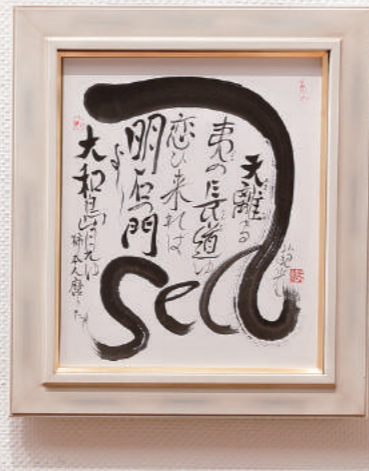 天離る
夷の長道ゆ
恋ひ来れば
明石の門
より
大和島山見ゆ
柿本人麿
sea